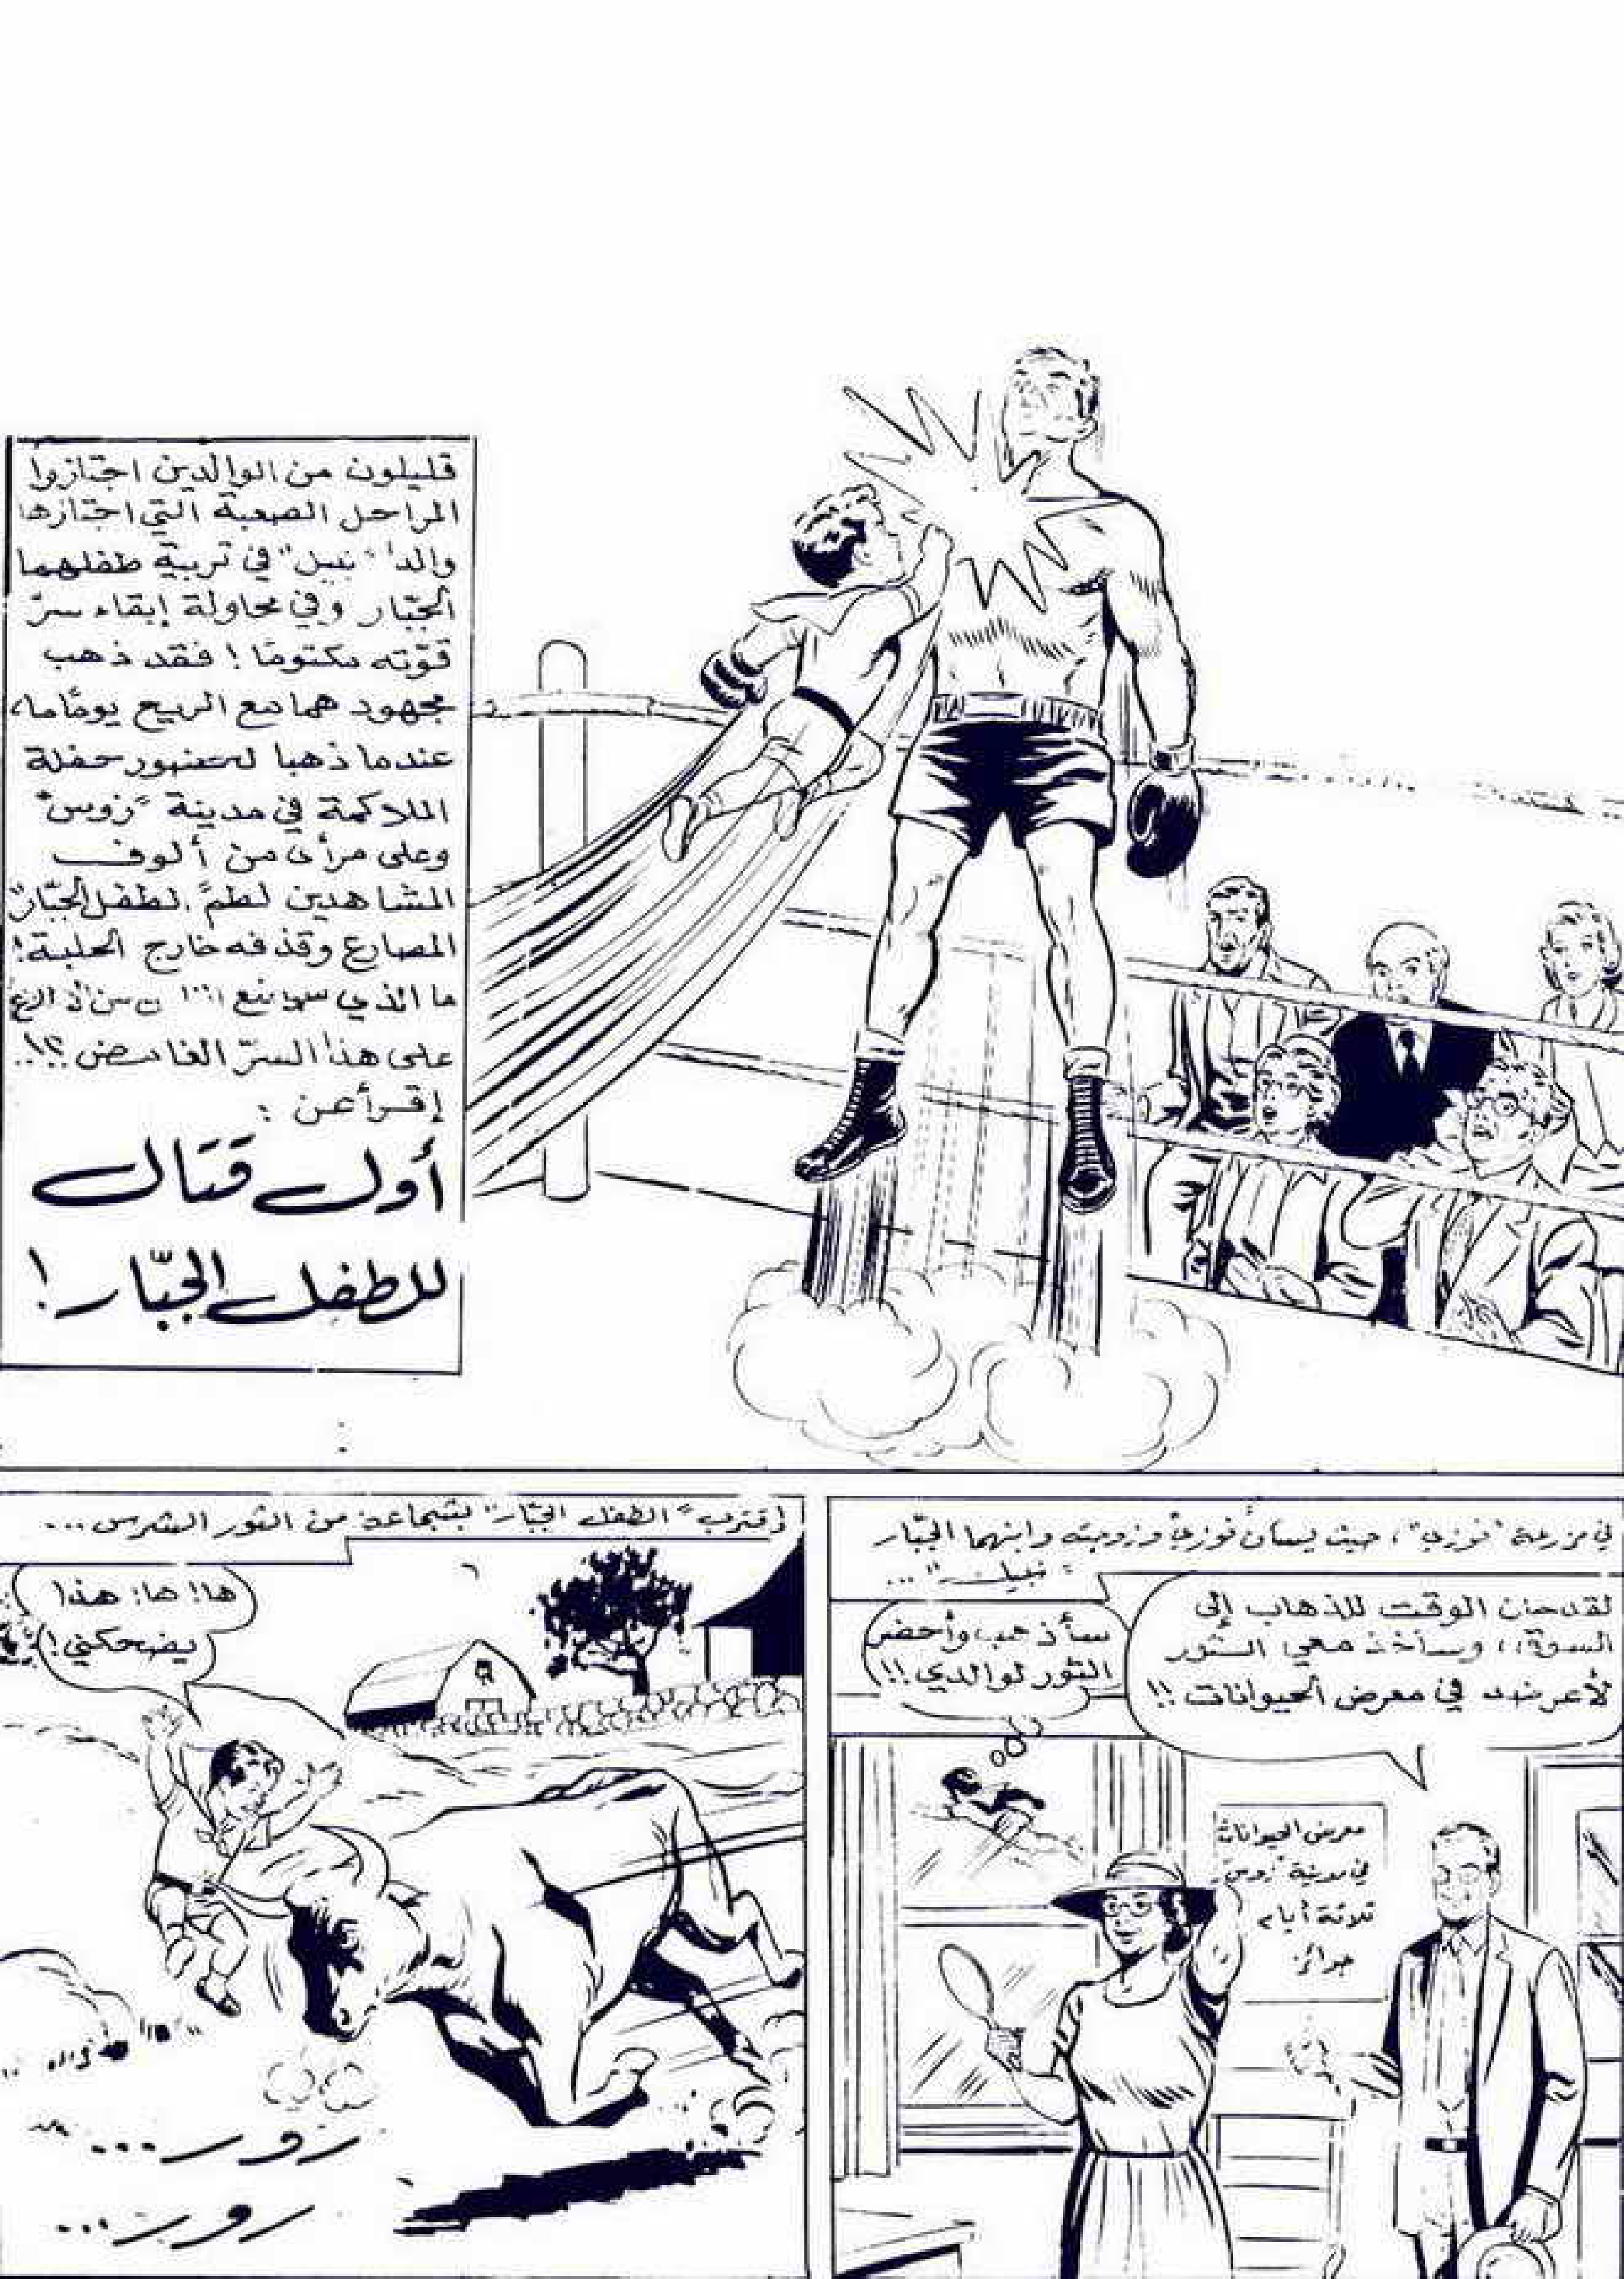 قليلون من الوالدين اجتازوا
المراحل الصعبة التي اجتازها
والدا "نبيل" في تربية طفلهما
الجبّار وفي محاولة إبقاء سرّ
قوّته مكتومًا! فقد ذهب
مجهودهما مع الريح يومًا ما،
عندما ذهبا لحضور حفلة
الملاكمة في مدينة "زوس"
وعلى مرأى من ألوف
المشاهدين لطم الطفل الجبّار
المصارع وقذفه خارج الحلبة!
ما الذي
على هذا السرّ الغامض؟!..
إقرأ عن:
أول قتال
للطفل الجبّار!
في مزرعة "فوزي"، حيث يسكن فوزي وزوجته وابنهما الجبّار
"نبيل"...
لقد حان الوقت للذهاب إلى
السوق، وسآخذ معي الثور
لأعرضه في معرض الحيوانات!!
سأذهب وأحضر
الثور لوالدي!!
معرض الحيوانات
في مدينة "زوس"
ثلاثة أيام
جوائز
إقترب "الطفل الجبّار" بشجاعة من الثور الشرس...
ها! ها! هذا
يضحكني!
رور...
رور...